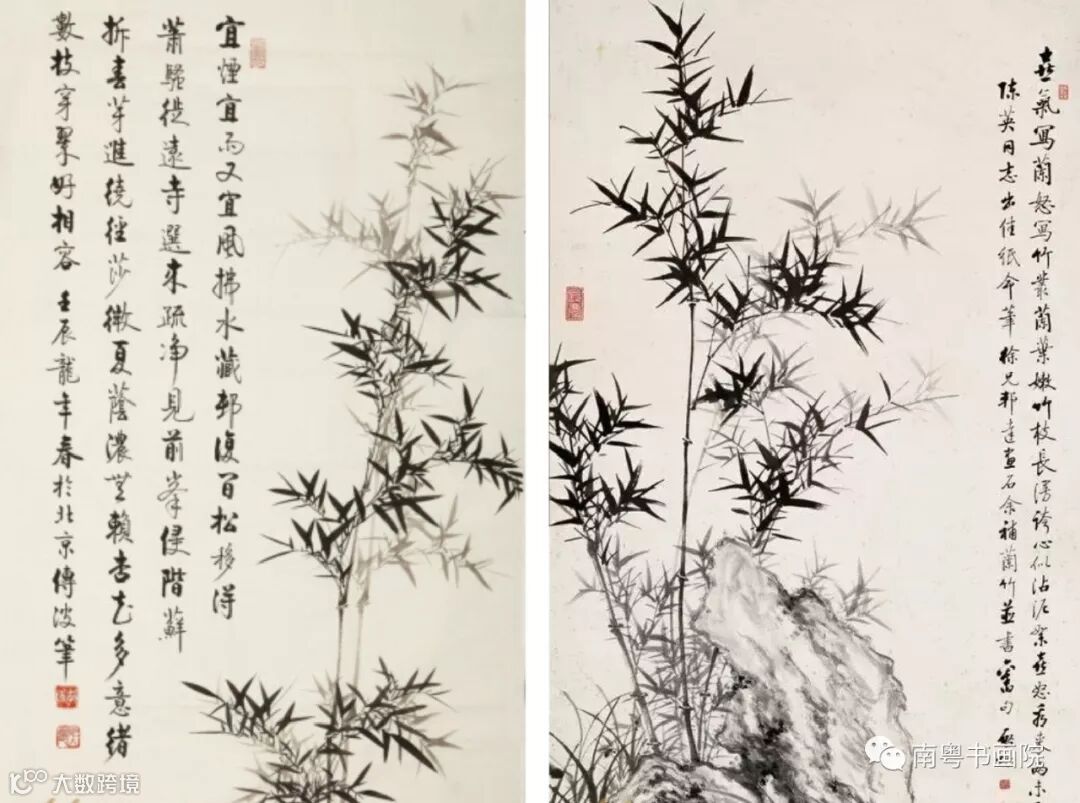 宜煙宜雨又宜風拂水藏邨復間松移得
蕭騷從遠寺選來疏淨見前峯侵階蘚
拆春芽迸繞徑莎微夏蔭濃無賴杏花多意緒
數枝穿翠好相容 壬辰龍年春於北京傳波筆
喜氣寫蘭怒寫竹叢蘭葉嫩竹枝長漫誇心似沾泥絮喜怒看來尚未
陳英同志出佳紙命筆徐兄邦達畫石余補蘭竹並書舊句
大数跨境
南粤书画院